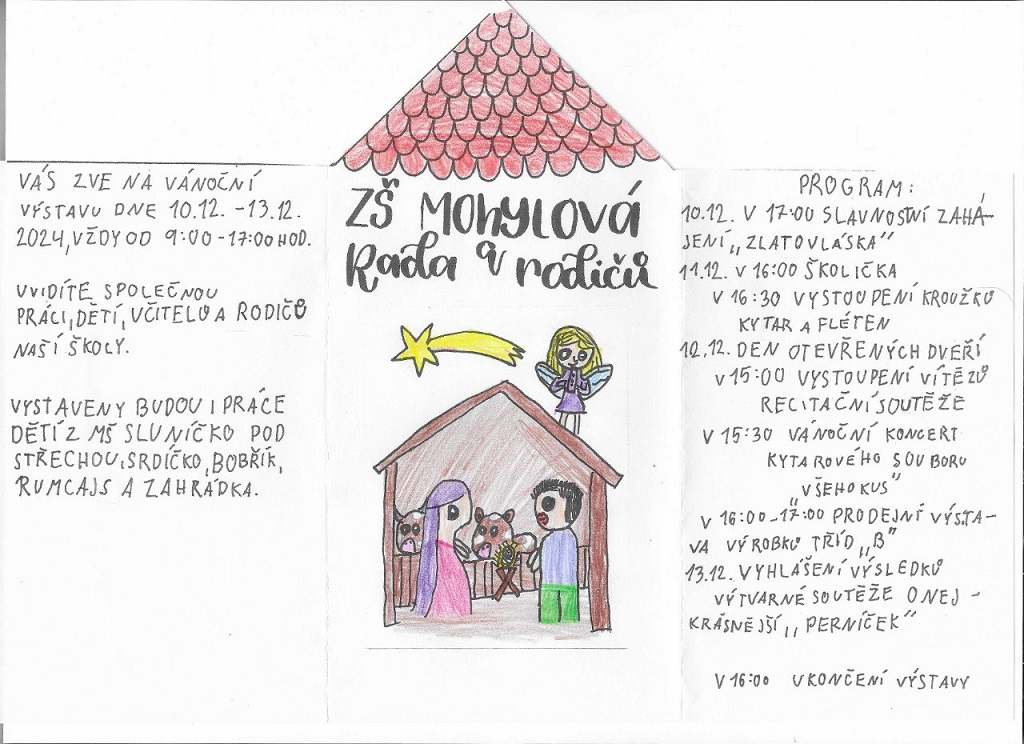 VÁS ZVE NA VÁNOČNÍ
VÝSTAVU DNE 10.12. -13.12.
2024, VŽDY OD 9:00 -17:00 HOD.
UVIDÍTE SPOLEČNOU
PRÁCI, DĚTÍ, UČITELŮ A RODIČŮ
NAŠÍ ŠKOLY.
VYSTAVENY BUDOU I PRÁCE
DĚTÍ Z MŠ SLUNÍČKO POD
STŘECHOU, SRDÍČKO, BOBŘÍK,
RUMCAJS A ZAHRÁDKA.
ZŠ MOhYLOVÁ
a
Rada rodičů
PROGRAM:
10.12. V 17:00 SLAVNOSTNÍ ZAHÁ-
JENÍ „ZLATOVLÁSKA"
11.12. V 16:00 ŠKOLIČKA
V 16:30 VYSTOUPENÍ KROUŽKŮ
KYTAR A FLÉTEN
12.12. DEN OTEVŘENÝCH DVEŘÍ
V 15:00 VYSTOUPENÍ VÍTĚZŮ
RECITAČNÍ SOUTĚŽE
V 15:30 VÁNOČNÍ KONCERT
KYTAROVÉHO SOUBORU
„VŠEHOKUS"
V 16:00-17:00 PRODEJNÍ VÝSTA-
VA VÝROBKŮ TŘÍD „B"
13.12. VYHLÁŠENÍ VÝSLEDKŮ
VÝTVARNÉ SOUTĚŽE O NEJ-
KRÁSNĚJŠÍ „PERNÍČEK"
V 16:00 UKONČENÍ VÝSTAVY